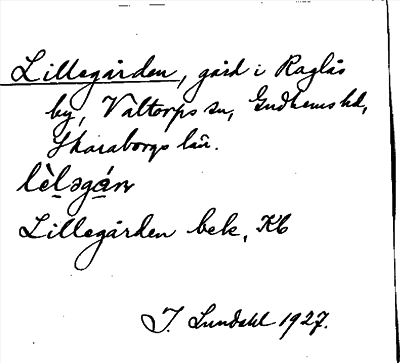 Lillegården, gård i Raglås
by, Valtorps sn, Gudhems hd,
Skaraborgs län.
lèl̠əgá̠n
Lillegården bek. Kb
I. Lundahl 1927.